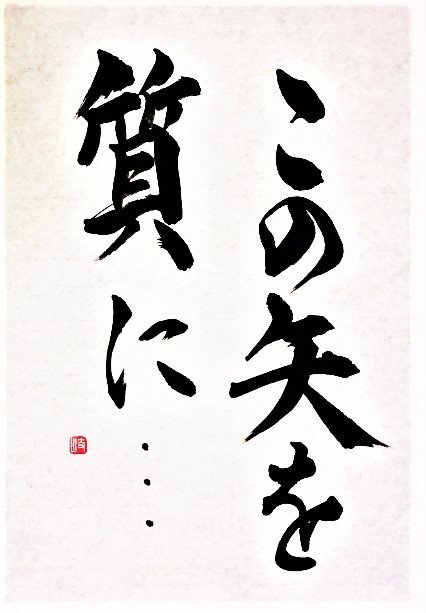 この矢を
質に…